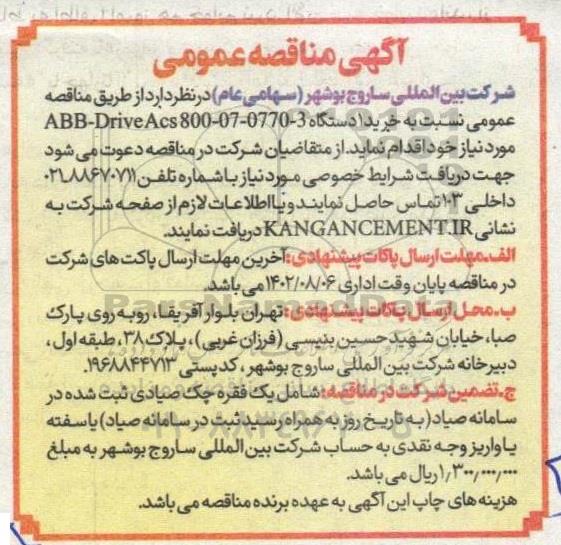 آگهی مناقصه عمومی
شرکت بین المللی ساروج بوشهر (سهامی عام) در نظر دارد از طریق مناقصه
عمومی نسبت به خرید ۱ دستگاه ABB-DriveAcs 800-07-0770-3
مورد نیاز خود اقدام نماید. از متقاضیان شرکت در مناقصه دعوت می شود
جهت دریافت شرایط خصوصی مورد نیاز با شماره تلفن ۸۸۶۷۰۷۱۱-۰۲۱
داخلی ۱۰۳ تماس حاصل نمایند و یا اطلاعات لازم از صفحه شرکت به
نشانی KANGANCEMENT.IR دریافت نمایند.
الف. مهلت ارسال پاکات پیشنهادی: آخرین مهلت ارسال پاکت های شرکت
در مناقصه پایان وقت اداری ۱۴۰۲/۰۸/۰۶ می باشد.
ب. محل ارسال پاکات پیشنهادی: تهران بلوار آفریقا، روبه روی پارک
صبا، خیابان شهید حسین بنیسی (فرزان غربی)، پلاک ۳۸، طبقه اول،
دبیرخانه شرکت بین المللی ساروج بوشهر، کد پستی ۱۹۶۸۸۴۴۷۱۳.
ج. تضمین شرکت در مناقصه: شامل یک فقره چک صیادی ثبت شده در
سامانه صیاد (به تاریخ روز به همراه رسید ثبت در سامانه صیاد) یا سفته
یا واریز وجه نقدی به حساب شرکت بین المللی ساروج بوشهر به مبلغ
۱,۳۰۰,۰۰۰,۰۰۰ ریال می باشد.
هزینه های چاپ این آگهی به عهده برنده مناقصه می باشد.
ParsNamadData